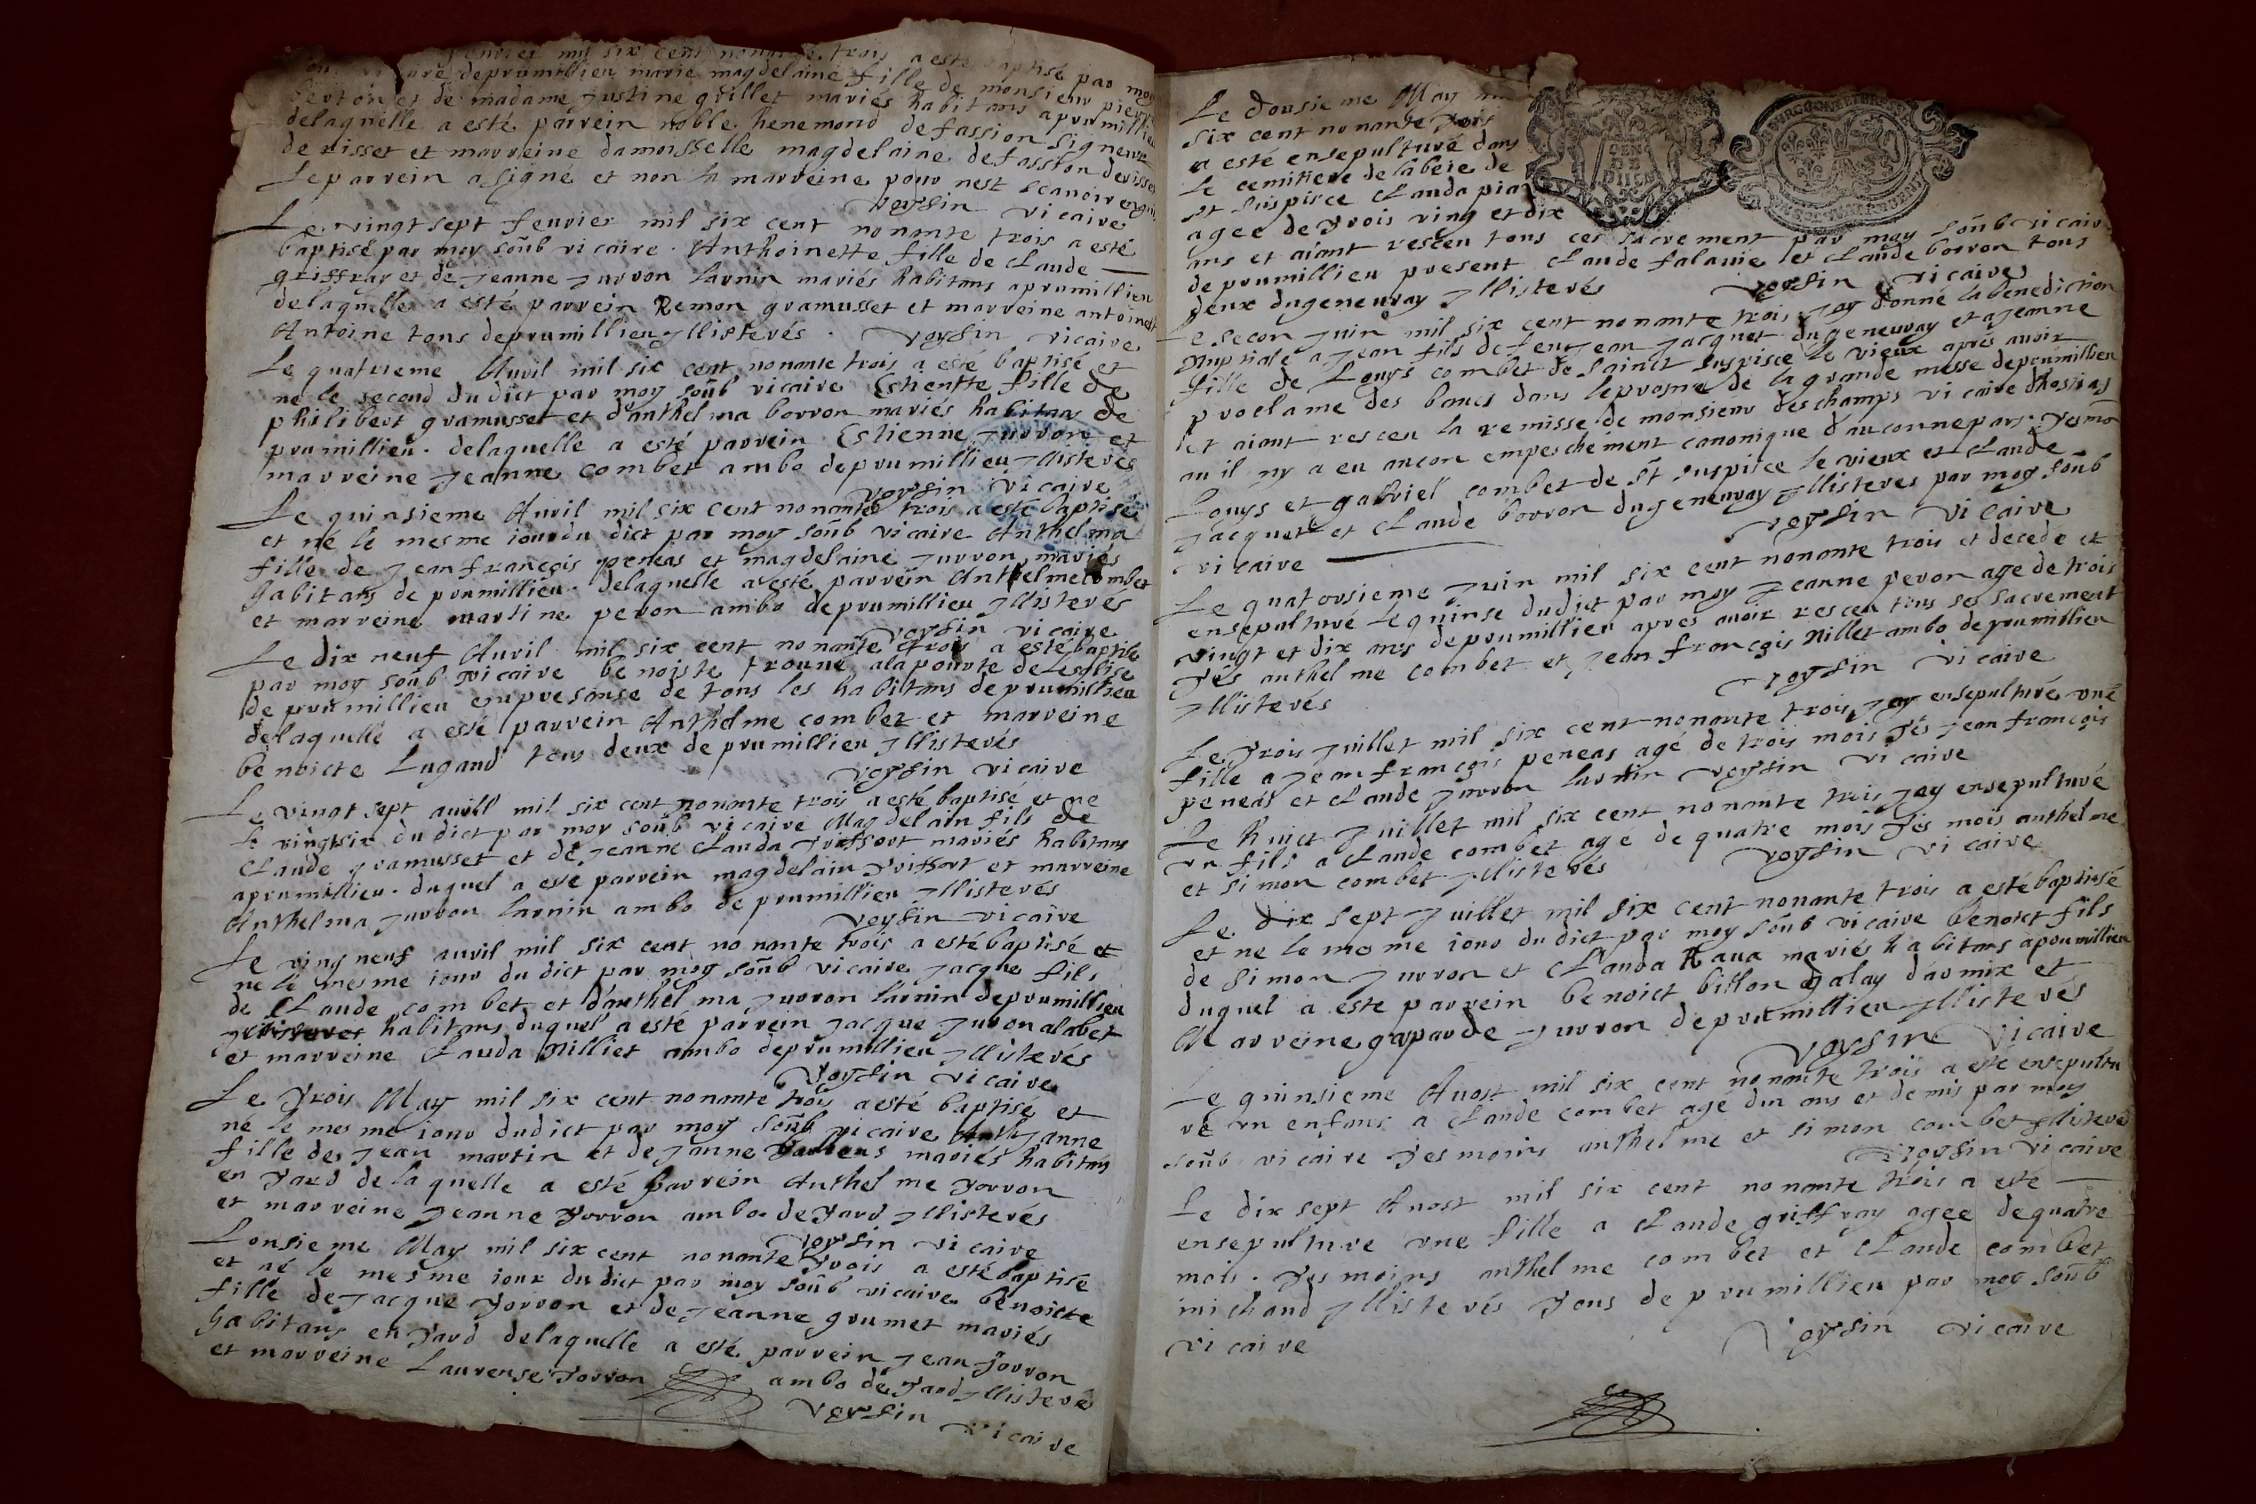 mil six cent nonante trois a esté baptisé par moy
vicaire de prumillieu marie magdelaine fille de monsieur pierre
berton et de madame justine grillet mariés habitans a prumillieu
delaquelle a esté parrein noble henemond de fassion signeur
de risset et marreine damoiselle magdelaine de fassion de risset
Le parrein a signé et non la marreine pour nest scauoir
voysin vicaire
Le vingt sept feurier mil six cent nonante trois a esté
baptisé par moy soub vicaire. Anthoinette fille de claude
griffray et de jeanne jurron larnin mariés habitans a prumillieu
delaquelle a esté parrein Remon gramusset et marreine antoinett
Antoine tous de prumillieu illisterés. voysin vicaire
Le quatrieme Auril mil six cent nonante trois a esté baptisé et
né le second du dict par moy soub vicaire Estientte fille de
philibert gramusset et d'anthelma borron mariés habitans de
prumillieu. delaquelle a esté parrein Estienne jurron et
marreine jeanne combet ambo de prumillieu illisterés
voysin vicaire
Le quinsieme Auril mil six cent nonante trois a esté baptisé
et né le mesme iour du dict par moy soub vicaire Anthelma
fille de jean françois peneas et magdelaine jurron mariés
habitans de prumillieu. delaquelle a esté parrein Anthelme combet
et marreine martine peron ambo de prumillieu illisterés
voysin vicaire
Le dix neuf Auril mil six cent nonante trois a esté baptisé
par moy soub vicaire benoiste trouué a la pourte de Leglise
de prumillieu en presanse de tous les habitans de prumillieu
delaquelle a esté parrein Anthelme combet et marreine
benoicte Lugand tous deux de prumillieu illisterés
voysin vicaire
Le vingt sept auill mil six cent nonante trois a esté baptisé et ne
le vingtsix du dict par moy soub vicaire Magdelain fils de
Claude gramusset et de jeanne Clauda Triffort mariés habitans
a prumillieu. duquel a esté parrein magdelain Triffort et marreine
Anthelma jurron larnin ambo de prumillieu illisterés
voysin vicaire
Le ving neuf auril mil six cent nonante trois a esté baptisé et
né le mesme iour du dict par moy soub vicaire jacque fils
de Claude combet et d'anthelma jurron larnin de prumillieu
habitans duquel a esté parrein jacque juron alabet
et marreine Clauda Nilliet ambo de prumillieu illisterés
voysin vicaire
Le Trois May mil six cent nonante trois a esté baptisé et
né le mesme iour dudict par moy soub vicaire janne
fille de jean martin et de janne mariés habitans
en Tard de laquelle a esté parrein Anthelme Torron
et marreine jeanne Torron ambo de Tard illisterés
voysin vicaire
Lonsieme May mil six cent nonante Trois a esté baptisé
et né le mesme iour du dict par moy soub vicaire benoicte
fille de jacque Torron et de jeanne grumet mariés
habitans en Tard delaquelle a esté parrein jean Torron
et marreine Laurense Torron ambo de Tard illisteré
voysin vicaire
Le dousieme May mil
six cent nonante Trois
a esté ensepulturé dans
le cemitiere de labeie de
st suspisce clauda
agee de Trois ving et dix
ans et aiant resceu tous ces sacrement par moy soub vicaire
de prumillieu present claude falauie et claude borron tous
deux du geneuray illisterés voysin vicaire
Le secon juin mil six cent nonante trois jay donné la benediction
nuptiale a jean fils de feu jean jacquet du geneuray et a jeanne
fille de Louys combet de sainct suspisce le vieux apres auoir
proclame des bancs dans le prosne de la grande messe de prumillieu
et aiant resceu la remisse de monsieur deschamps vicaire dhostias
qu il ny a eu aucon empeschement canonique d'auconne part. Tesmo
Louys et gabriel combet de st suspisce le vieux et claude
jacquet et claude borron du geneuray illisteres par moy soub
vicaire voysin vicaire
Le quatorsieme juin mil six cent nonante trois et decede et
ensepulturé le quinse dudict par moy jeanne peron agé de trois
vingt et dix ans de prumillieu apres auoir resceu tous ses sacrement
Tés anthelme combet et jean françois Nillet ambo de prumillieu
illisterés voysin vicaire
Le Trois juillet mil six cent nonante trois jay ensepulturé vne
fille a jean françois peneas agé de trois mois Tés jean françois
peneas et claude jurron larnin voysin vicaire
Le huict juillet mil six cent nonante trois jay ensepulturé
vn fils a claude combet agé de quatre mois Tés mois anthelme
et simon combet illisterés voysin vicaire
Le dix sept juillet mil six cent nonante trois a esté baptisé
et ne le mesme iour du dict par moy soub vicaire benoict fils
de simon jurron et Clauda Raua mariés habitans a prumillieu
duquel a este parrein benoict billon galay d'armix et
Marreine gasparde jurron de prumillieu illisterés
voysin vicaire
Le quinsieme Auost mil six cent nonante trois a este ensepultu
ré vn enfans a claude combet agé dun ans et demis par moy
soub vicaire Tesmoins anthelme et simon combet illisteres
voysin vicaire
Le dix sept Auost mil six cent nonante trois a esté
ensepulture vne fille a claude griffray agee de quatre
mois. Tesmoins anthelme combet et claude combet
michaud illisterés Tous de prumillieu par moy soub
vicaire voysin vicaire